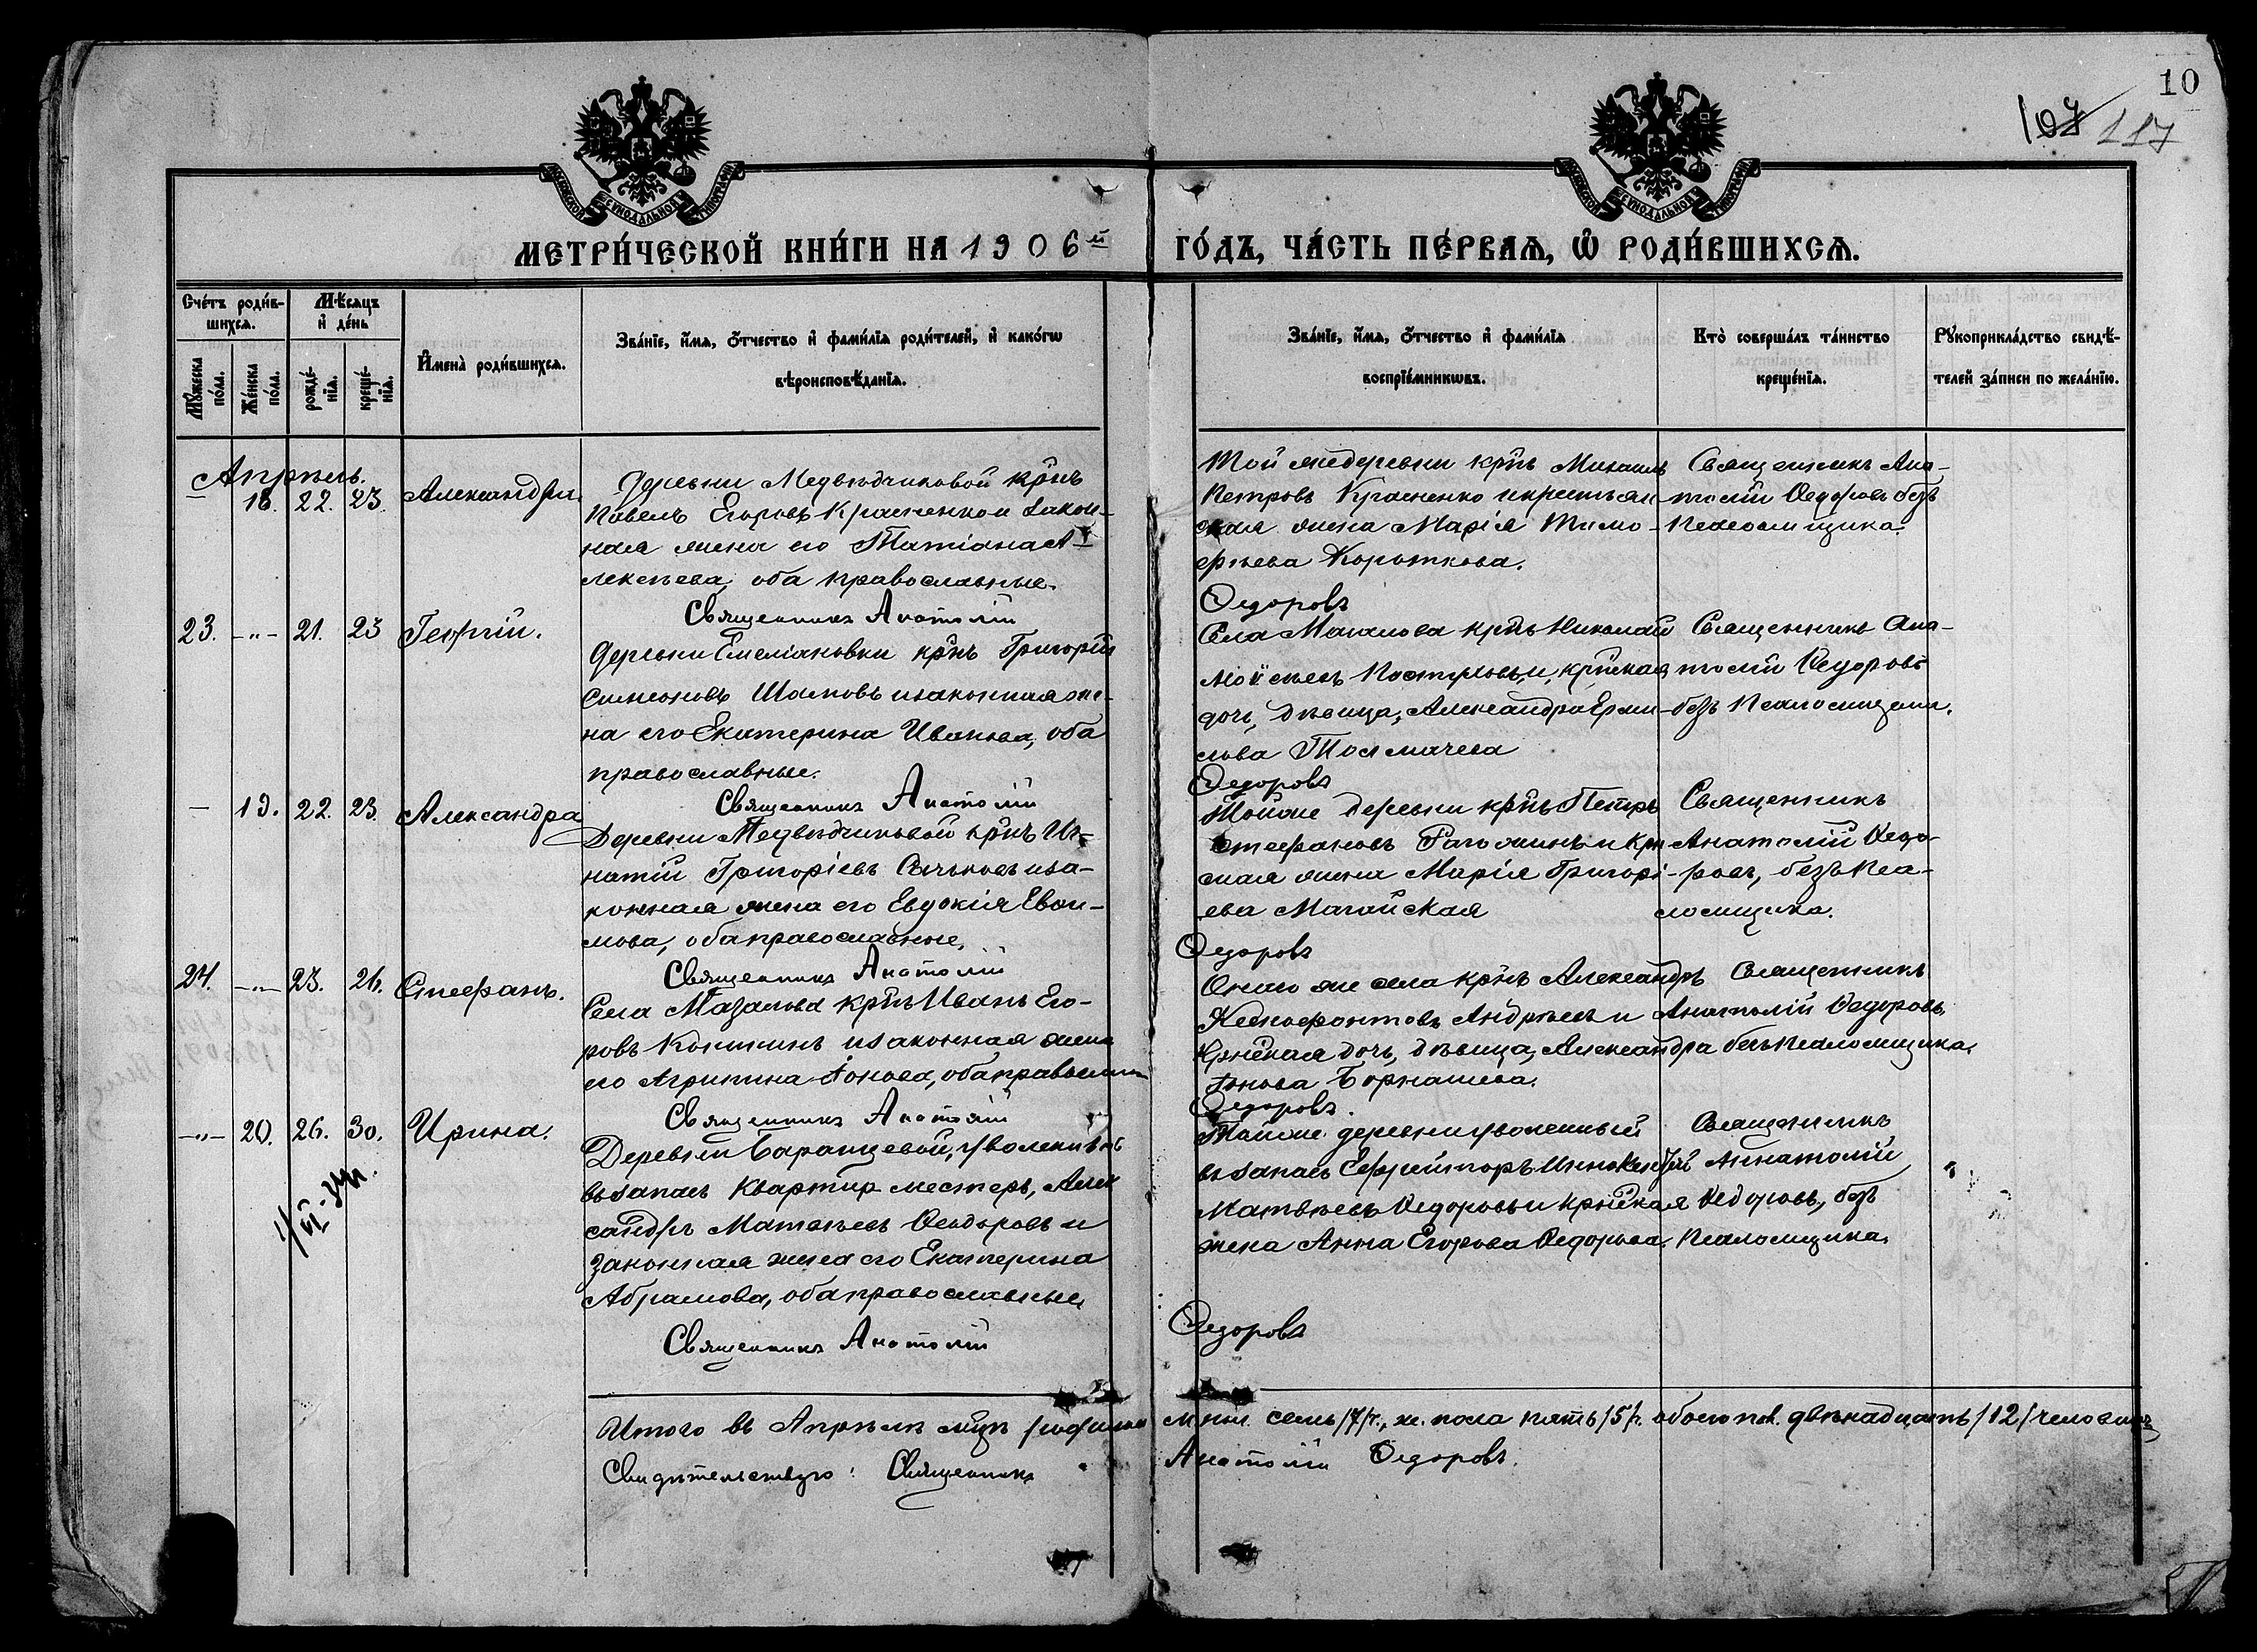 10
107 117
МЕТРИ́ЧЕСКОЙ КНИ́ГИ НА 1906й ГО́ДЪ, ЧА́СТЬ ПЕ́РВАѦ, Ѽ РОДИ́ВШИХСѦ.
Сче́тъ роди́в-
шихсѧ.
Мѣ́сѧцъ
и҆ де́нь
Мꙋ́жеска по́ла.
Же́нска по́ла.
рожде́-
нїѧ.
креще́-
нїѧ.
И҆мена̀ роди́вшихсѧ.
Зва́нїе, и҆́мѧ, ѻ҆́тчество и҆ фами́лїѧ роди́телей, и҆ како́гѡ
вѣроисповѣ́данїѧ.
Зва́нїе, и҆́мѧ, ѻ҆́тчество и҆ фами́лїѧ
воспрїе́мникѡвъ.
Кто̀ соверша́лъ та́инство
креще́нїѧ.
Рꙋкоприкла́дство свидѣ́-
телей за́писи по жела́нїю.
Апрѣль.
18. 22. 23. Александра.
Деревни Медвѣдчиковой крнъ
Павелъ Егоровъ Крашенко и закон-
ная жена его Татіана А-
лексѣева, оба православные.
Священникъ Анатолій
Той же деревни крнъ Михаилъ
Петровъ Крашенко и крестьян-
ская жена Марія Тимо-
феева Короткова.
Ѳедоровъ
Священникъ Ана-
толій Ѳедоровъ безъ
Псаломщика.
23. -"- 21. 23 Георгій.
Деревни Емеліановки крнъ Григорій
Симеоновъ Шаповъ и законная же-
на его Екатерина Иванова, оба
православные.
Священникъ Анатолій
Села крнъ Николай
Моѵсеевъ и крнская
дочь, дѣвица, Александра Ерми-
лова Толмачева
Ѳедоровъ
Священникъ Ана-
толій Ѳедоровъ
безъ Псаломщика.
- 19. 22. 23. Александра
Деревни Медвѣдчиковой крнъ Иг-
натій Григоріевъ и за-
конная жена его Евдокія Евѳи-
мова, оба православные.
Священникъ Анатолій
Той же деревни крнъ Петръ
Стефановъ Рагожинъ и кре-
ская жена Марія Григорі-
ева
Ѳедоровъ
Священникъ
Анатолій Ѳедо-
ровъ, безъ Пса-
ломщика.
24. -"- 23. 26. Стефанъ.
Села крнъ Иванъ Его-
ровъ и законная жена
его Агрипина Іонова, оба православн
Священникъ Анатолій
Онаго же села крнъ Александръ
Ксенофонтовъ Андреевъ и
крнская дочь, дѣвица, Александра
Іонова Борнашева.
Ѳедоровъ.
Священникъ
Анатолій Ѳедоровъ,
безъ Псаломщика.
-"- 20. 26. 30. Ирина.
Деревни Баранцевой, уволенный
въ запасъ Квартир местеръ, Алек
сандръ Матвѣевъ Ѳеодоровъ и
законная жена его Екатерина
Абрамова, оба православные
Священникъ Анатолій
Той же деревни уволенный
въ запасъ Ефрейторъ Иннокентій
Матвѣевъ Ѳедоровъ и крнская
жена Анна Егорова Ѳедорова.
Ѳедоровъ
Священникъ
Аннатолій
Ѳедоровъ, безъ
Псаломщика.
Итого въ Апрѣлѣ мцѣ родилось м. пол. семь /7/, ж. пола пять /5/. обоего пол. двѣнадцать /12/ человѣкъ
Свидѣтельствую: Священникъ Анатолій Ѳедоровъ.